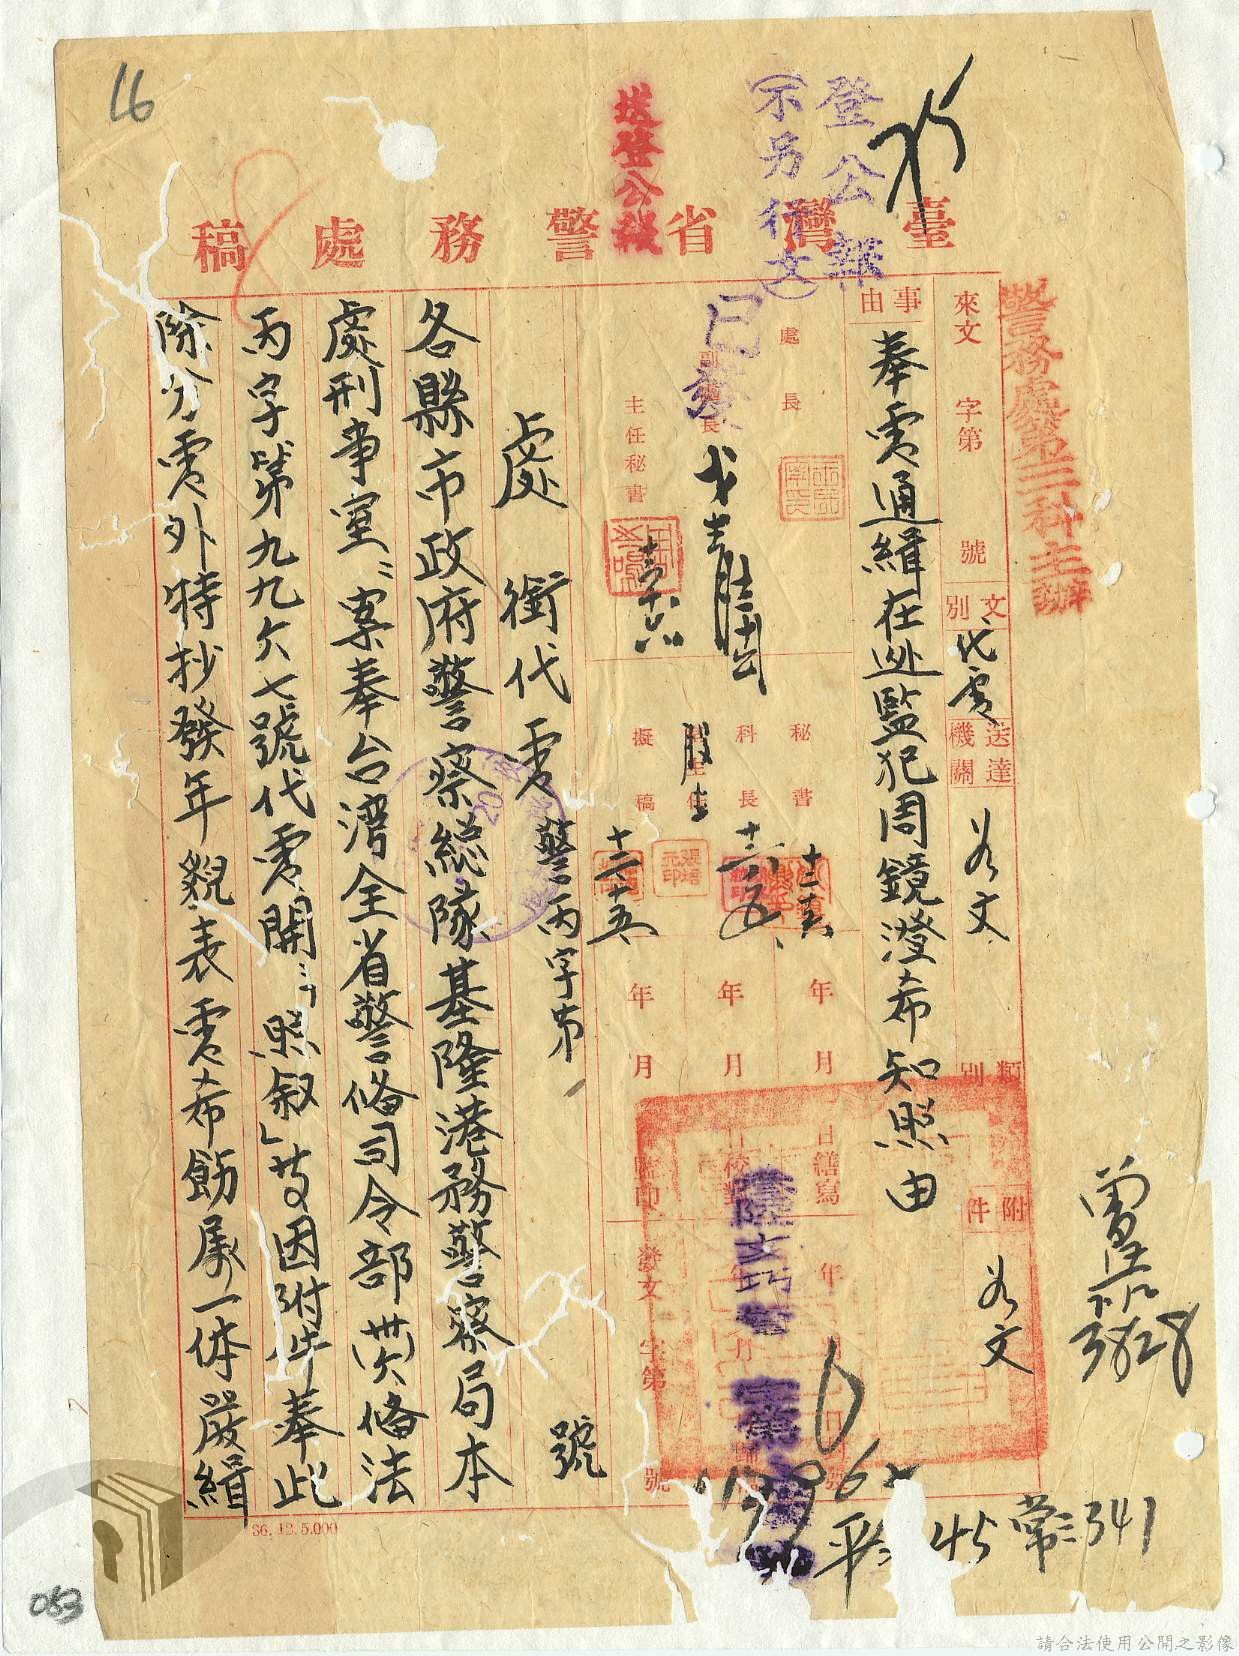 16
送登公報
登公報
(不另行文)
臺灣省警務處稿
警務處第三科主辦
來文 字第 號
文別 代電
送達機關 如文
類別
附件 如文
事由
奉電通緝在逃監犯周鏡澄希知照由
處長
副處長
主任秘書
已發
秘書
科長
股主任
擬稿
年 月 日繕寫
年 月 日校對
年 月 日監印
發文 字第 號
處銜代電 警丙字第 號
各縣市政府警察總隊基隆港務警察局本
處刑事室:案奉台灣全省警備司令部(卅六)備法
丙字第九九六七號代電開:「照叙」等因附件奉此
除分電外特抄發年貌表電希飭屬一体嚴緝
36.12.5.000
3828
平 45
341
063
請合法使用公開之影像